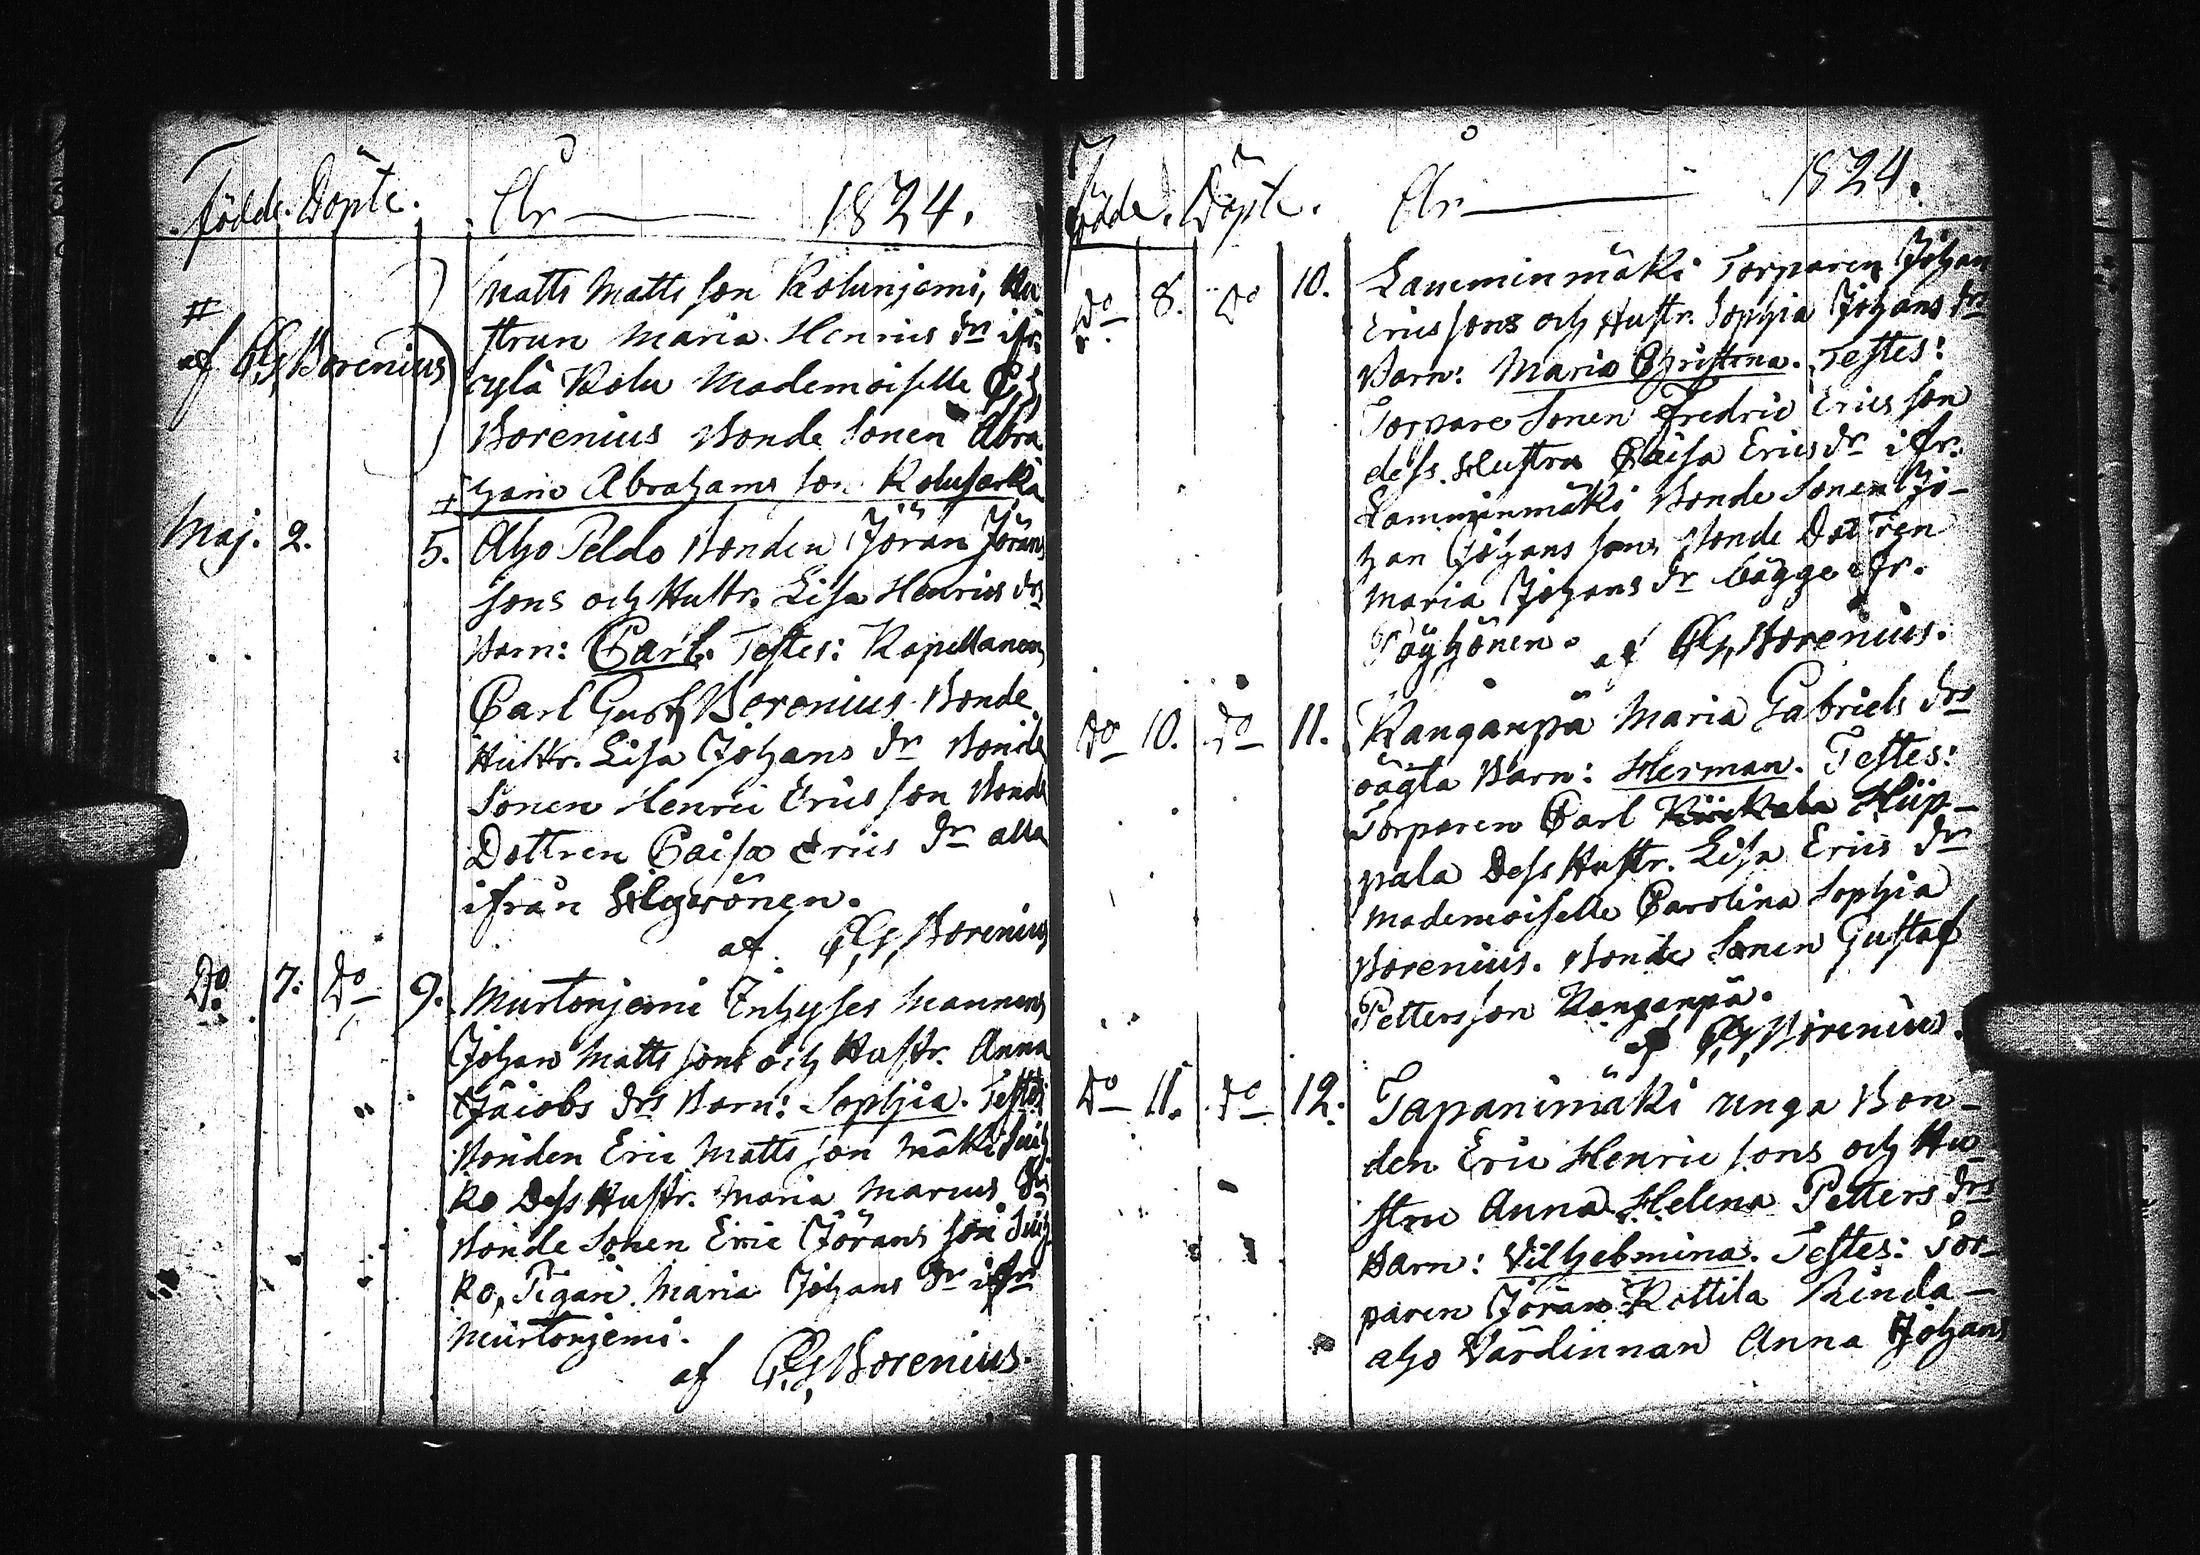 Födde. Döpte. År — 1824.
#
af CG, Borenius
Matts Matts son Kolunjemi, Hu
strun Maria Henrics dr ifr.
cylä Kolu Mademoiselle C, S,
Borenius Bonde Sonen Abra
ham Abrahams son Kolusarka
+
Maj. 2. 5. Aho Peldo Bonden Jöran Jörans
sons och Hustr. Lisa Henrics drs
Barn: Carl. Testes: Kapellanen
Carl Gust, Borenius Bonde
Hustr. Lisa Johans dr Bonde
Sonen Henric Erics son Bonde
Dottren Caisa Erics dr alla
ifrån
af CG, Borenius
Do 7. Do 9. Murtonjemi Inhyses Mannens
Johan Matts sons och Hustr. Anna
Jacobs drs Barn: Sophia. Testes
Bonden Eric Matts son Mäki Suih
ko Dess Hustr. Maria Marcus dr
Bonde Sonen Eric Jörans son Suih
ko, Pigan Maria Johans dr ifrn
Murtonjemi.
af CG, Borenius.
Födde. Döpte. År — 1824.
Do 8. Do 10. Lamminmäki Torparen Johan
Erics sons och Hustr. Sophia Johans drs
Barn: Maria Christina. Testes:
Torpare Sonen Fredric Erics son
dess Hustru Caisa Erics dr ifr.
Lamminmäki Bonde Sonen Jo-
han Johans son, Bonde Dottren
Maria Johans dr bägge ifr.
Töyhönen. af CG, Borenius.
Do 10. Do 11. Kanganpä Maria Gabriels drs
oägta Barn: Herman. Testes:
Torparen Carl Hiip-
pala Dess Hustr. Lisa Erics dr
Mademoiselle Carolina Sophia
Borenius. Bonde Sonen Gustaf
Petters son Kanganpä.
af CG, Borenius.
Do 11. Do 12. Tapanimäki unga Bon-
den Eric Henric sons och Hu-
stru Anna Helena Petters drs
Barn: Vilhelmina. Testes: Tor-
paren Jöran Kottila Rinda-
aho Värdinnan Anna Johans